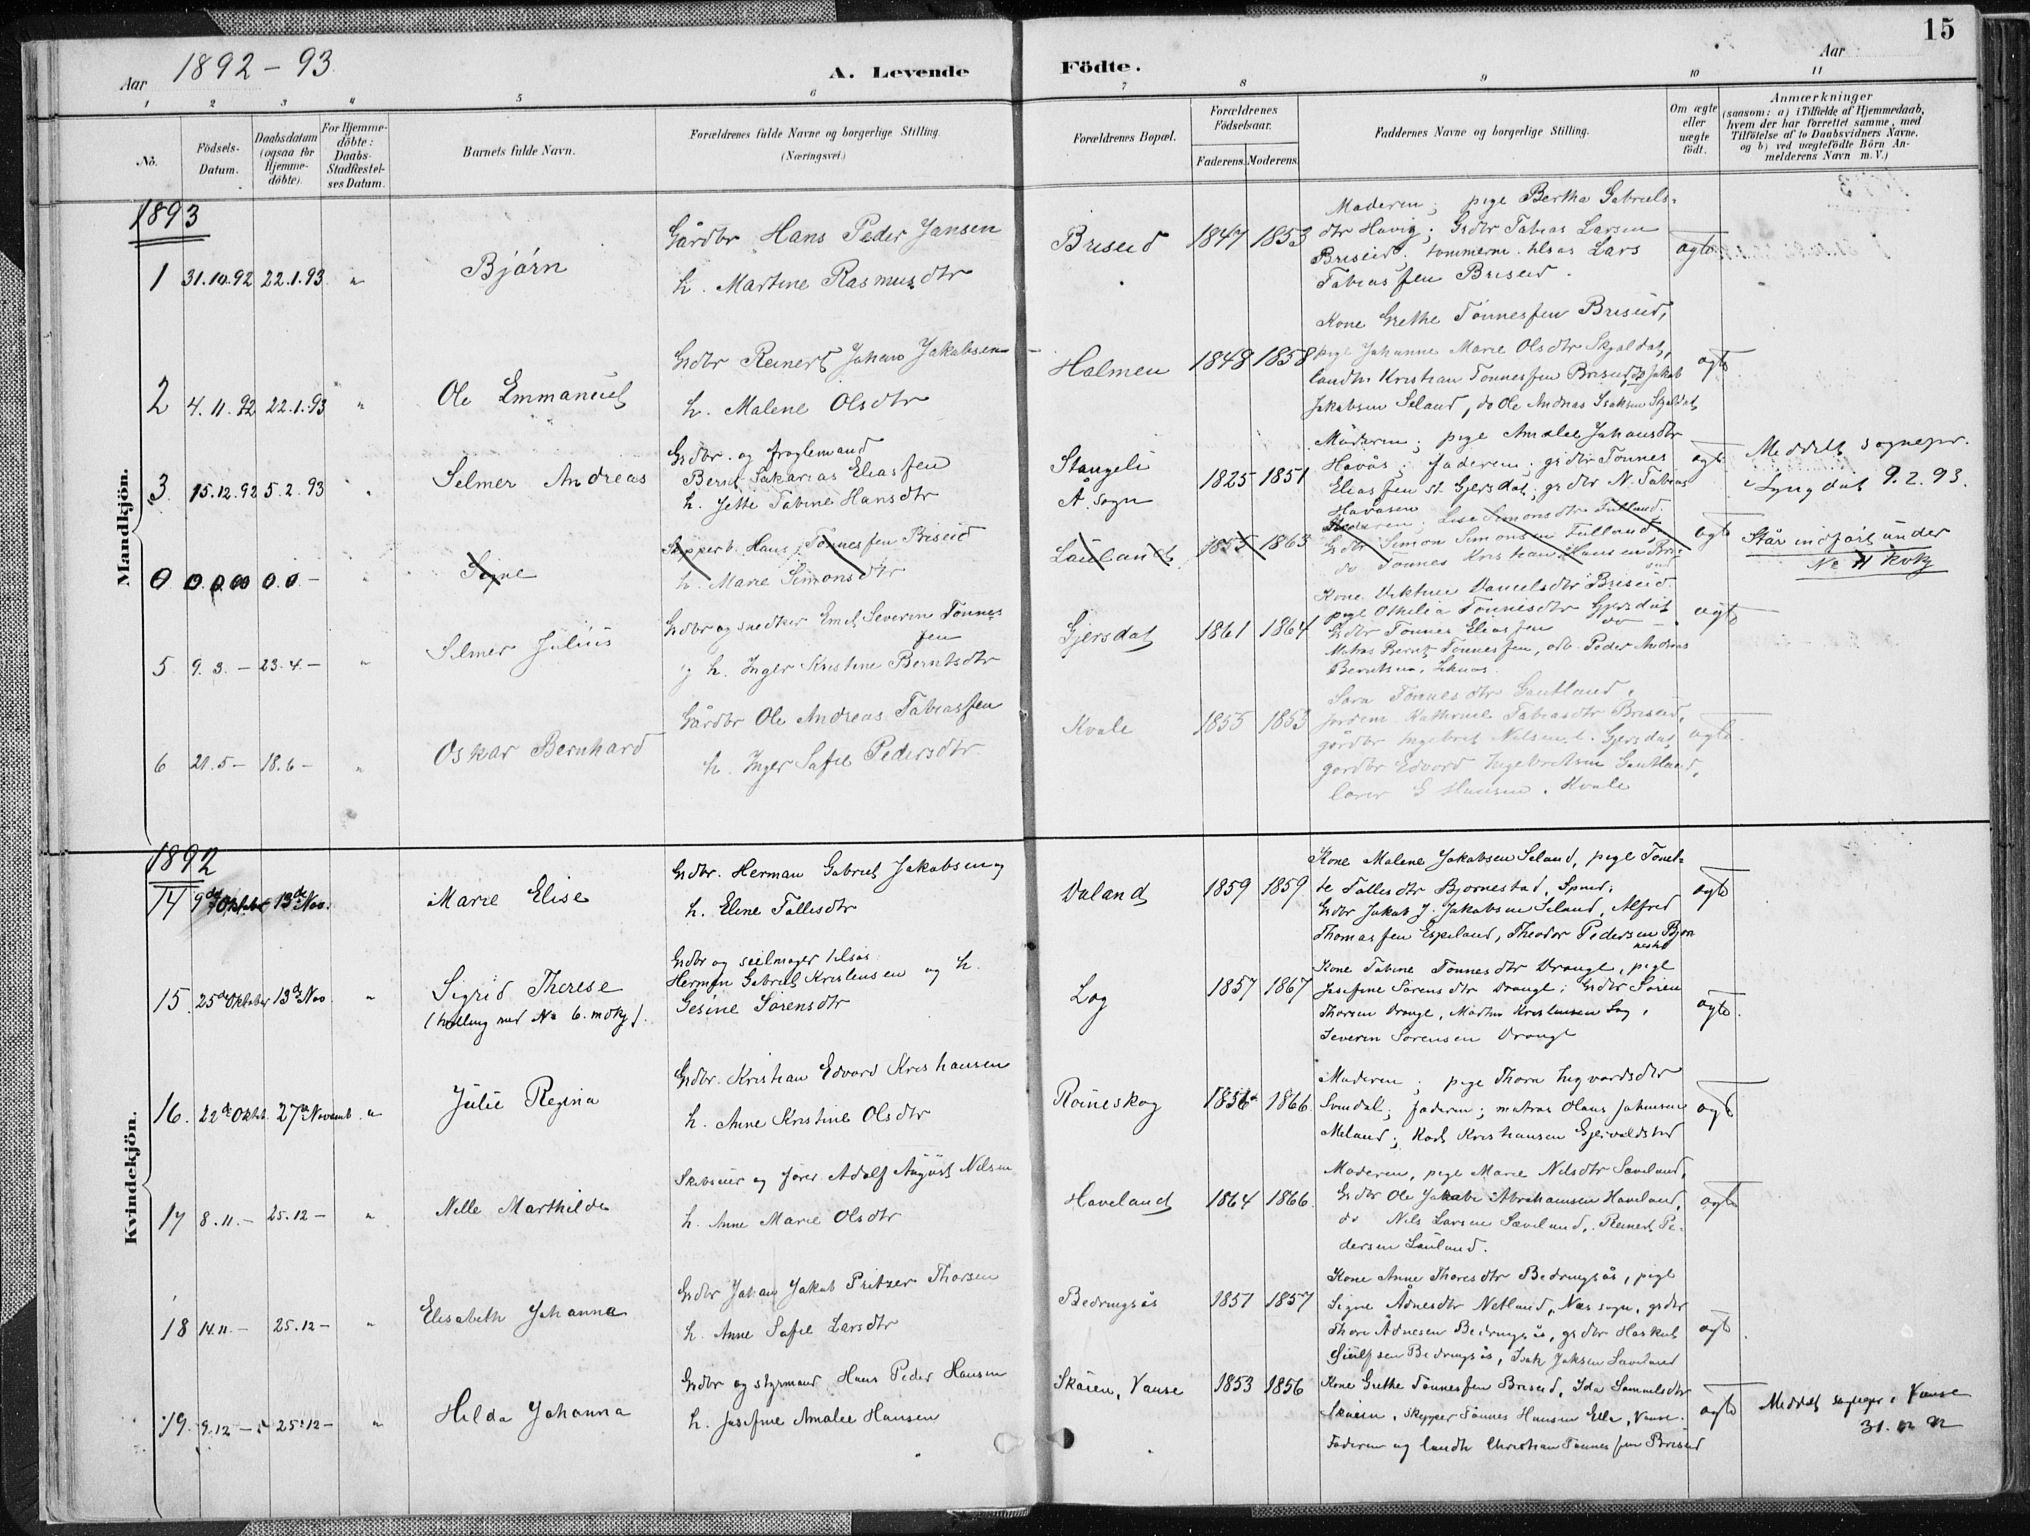 15
Aar 1892 - 93
A. Levende Födte.
Aar
1 2 3 4 5 6 7 8 9 10 11
No.
Födsels-Datum.
Daabsdatum (ogsaa for Hjemme-döbte).
For Hjemme-döbte: Daabs-Stadfæstel-ses Datum.
Barnets fulde Navn.
Forældrenes fulde Navne og borgerlige Stilling. (Næringsvei.)
Forældrenes Bopæl.
Forældrenes Födselsaar.
Faderens. Moderens.
Faddernes Navne og borgerlige Stilling.
Om ægte eller uægte födt.
Anmærkninger
(saasom: a) i Tilfælde af Hjemmedaab, hvem der har forrettet samme, med Tilföielse af to Daabsvidners Navne. og b) ved uægtefödte Börn An-melderens Navn m. V.)
Mandkjön.
1893
1 31.10.92 22.1.93 "
Bjørn
Gårdbr Hans Peder Jansen
h. Martine Rasmusdtr
Briseid 1847 1853
Moderen; pige Bertha Gabriels-
dtr Høvig; Gdbr Tobias Larsen
Briseid; tømmerm. Lars
Tobiassen Briseid.
ægte
2 4.11.92 22.1.93 "
Ole Emmanuel
Gdbr Reinert Johan Jakobsen
h. Malene Olsdtr
Holmen 1848 1858
Kone Grethe Tønnessen Briseid,
pige Johanne Marie Olsdtr Skjoldal,
landh. Kristian Tønnessen Briseid, do Jakob
Jakobsen Seland, do Ole Andreas Isaksen Skjoldal
ægte
3 15.12.92 5.2.93 "
Selmer Andreas
Gdbr. og fraglemand
Bernt Sakarias Eliassen
h. Jette Tobine Hansdtr
Stangeli
Å. sogn
1825 1851
Moderen; pige Amalie Johansdtr
Havås; faderen; gdbr Tønnes
Eliassen st. Gjersdal; gdbr N. Tobias
Havåsen
ægte
Meddelt sognepr.
i Lyngdal 9.2.93.
0 0.0.00 0.0.- "
Signe
Skipperb. Hans Tønnessen Briseid
h. Marie Simonsdtr
Lauland 1855 1863
Moderen; Lise Simonsdtr Fulland.
Gdbr Simon Simonsen Fulland,
do Tønnes Kristian Hansen Bri-
seid
ægte
Står indført under
No 4 kvkj
5 9.3.- 23.4.- "
Selmer Julius
Gdbr og snedker Emil Severin Tønnes-
sen
h. Inger Kristine Berntsdtr
Gjersdal 1861 1864
Kone Danielsdtr Briseid
pige Othelia Tønnesdtr Gjersdal
Gdbr Tønnes Eliassen do
Matros Bernt Tønnessen, arb. Peder Andreas
Berntsen,
ægte
6 21.5- 18.6- "
Oskar Bernhard
Gårdbr Ole Andreas Tobiassen
h. Inger Sofie Pedersdtr
Kvale 1855 1853
Sara Tønnesdtr Gautland,
jordem. Kathrine Tobiasdtr Briseid,
gårdbr Ingebret Nilsen l. Gjersdal,
gårdbr Edvard Ingebretsen Gautland,
lærer G Hansen, Kvale
ægte.
Kvindekjön.
1892
14 9de Oktober 13de Nov.
Marie Elise
Gdbr. Herman Gabriel Jakobsen og
h. Elene Tallisdtr
Valand 1859 1859
Kone Malene Jakobsen Seland, pige Tonet-
te Tallesdtr Bjørnestad, Spind;
Gdbr Jakob J. Jakobsen Seland, Alfred
Thomassen Espeland, Theodor Pedersen Bjør-
nestad
ægte
15. 25de Oktober 13de Nov "
Sigrid Therese
(tvilling med No 6. mdkj).
Gdbr og seilmager
Herman Gabriel Kristensen og h.
Gesine Sørensdtr
Log 1857 1867
Kone Tobine Tønnesdtr Drange, pige
Josefine Sørensdtr Drange; Gdbr Søren
Thorsen Drange, Martin Kristensen Log,
Severin Sørensen Drange
ægte.
16. 22de Oktob. 27de Novemb. "
Julie Regina
Gdbr. Kristian Edvard Kristiansen
h. Anne Kristine Olsdtr
Røineskog 1856 1866.
Moderen; pige Thora Ingvardsdtr
Svindal; faderen; matros Olaus Johnsen
Meland; Karl Kristiansen Gjervoldstad
ægte
17 8.11.- 25.12- "
Nelle Marthilde
Skibseier og fører Adolf August Nilsen
h. Anne Marie Olsdtr
Haveland 1864 1866.
Moderen, pige Marie Nilsdtr Saveland,
Gdbr Ole Jakob Abrahamsen Haveland,
do Nils Larsen Saveland, Reinert Pe-
dersen Lauland.
ægte
18 14.11- 25.12- "
Elisabeth Johanna
Gdbr Johan Jakob Pritzer Thorsen
h. Anne Sofie Larsdtr
Bedringsås 1851 1857
Kone Anne Thoresdtr Bedringsås, pige
Signe Ådnesdtr Netland, Næs sogn, gdbr
Thore Ådnesen Bedringsås, gdbr Haskel
Bedringsås, Isak Saveland
ægte.
19. 9.12- 25.12- "
Hilda Johanna
Gdbr og styrmand Hans Peder Hansen
h. Josefine Amalie Hansen
Skåien, Vanse 1853 1856
Kone Grethe Tønnessen Briseid, Ida Samuelsdtr
Skåien, skipper Tønnes Hansen Elle, Vanse.
Faderen og landh Christian Tønnessen Briseid
ægte
Meddelt sognepr. i Vanse
31.12 92